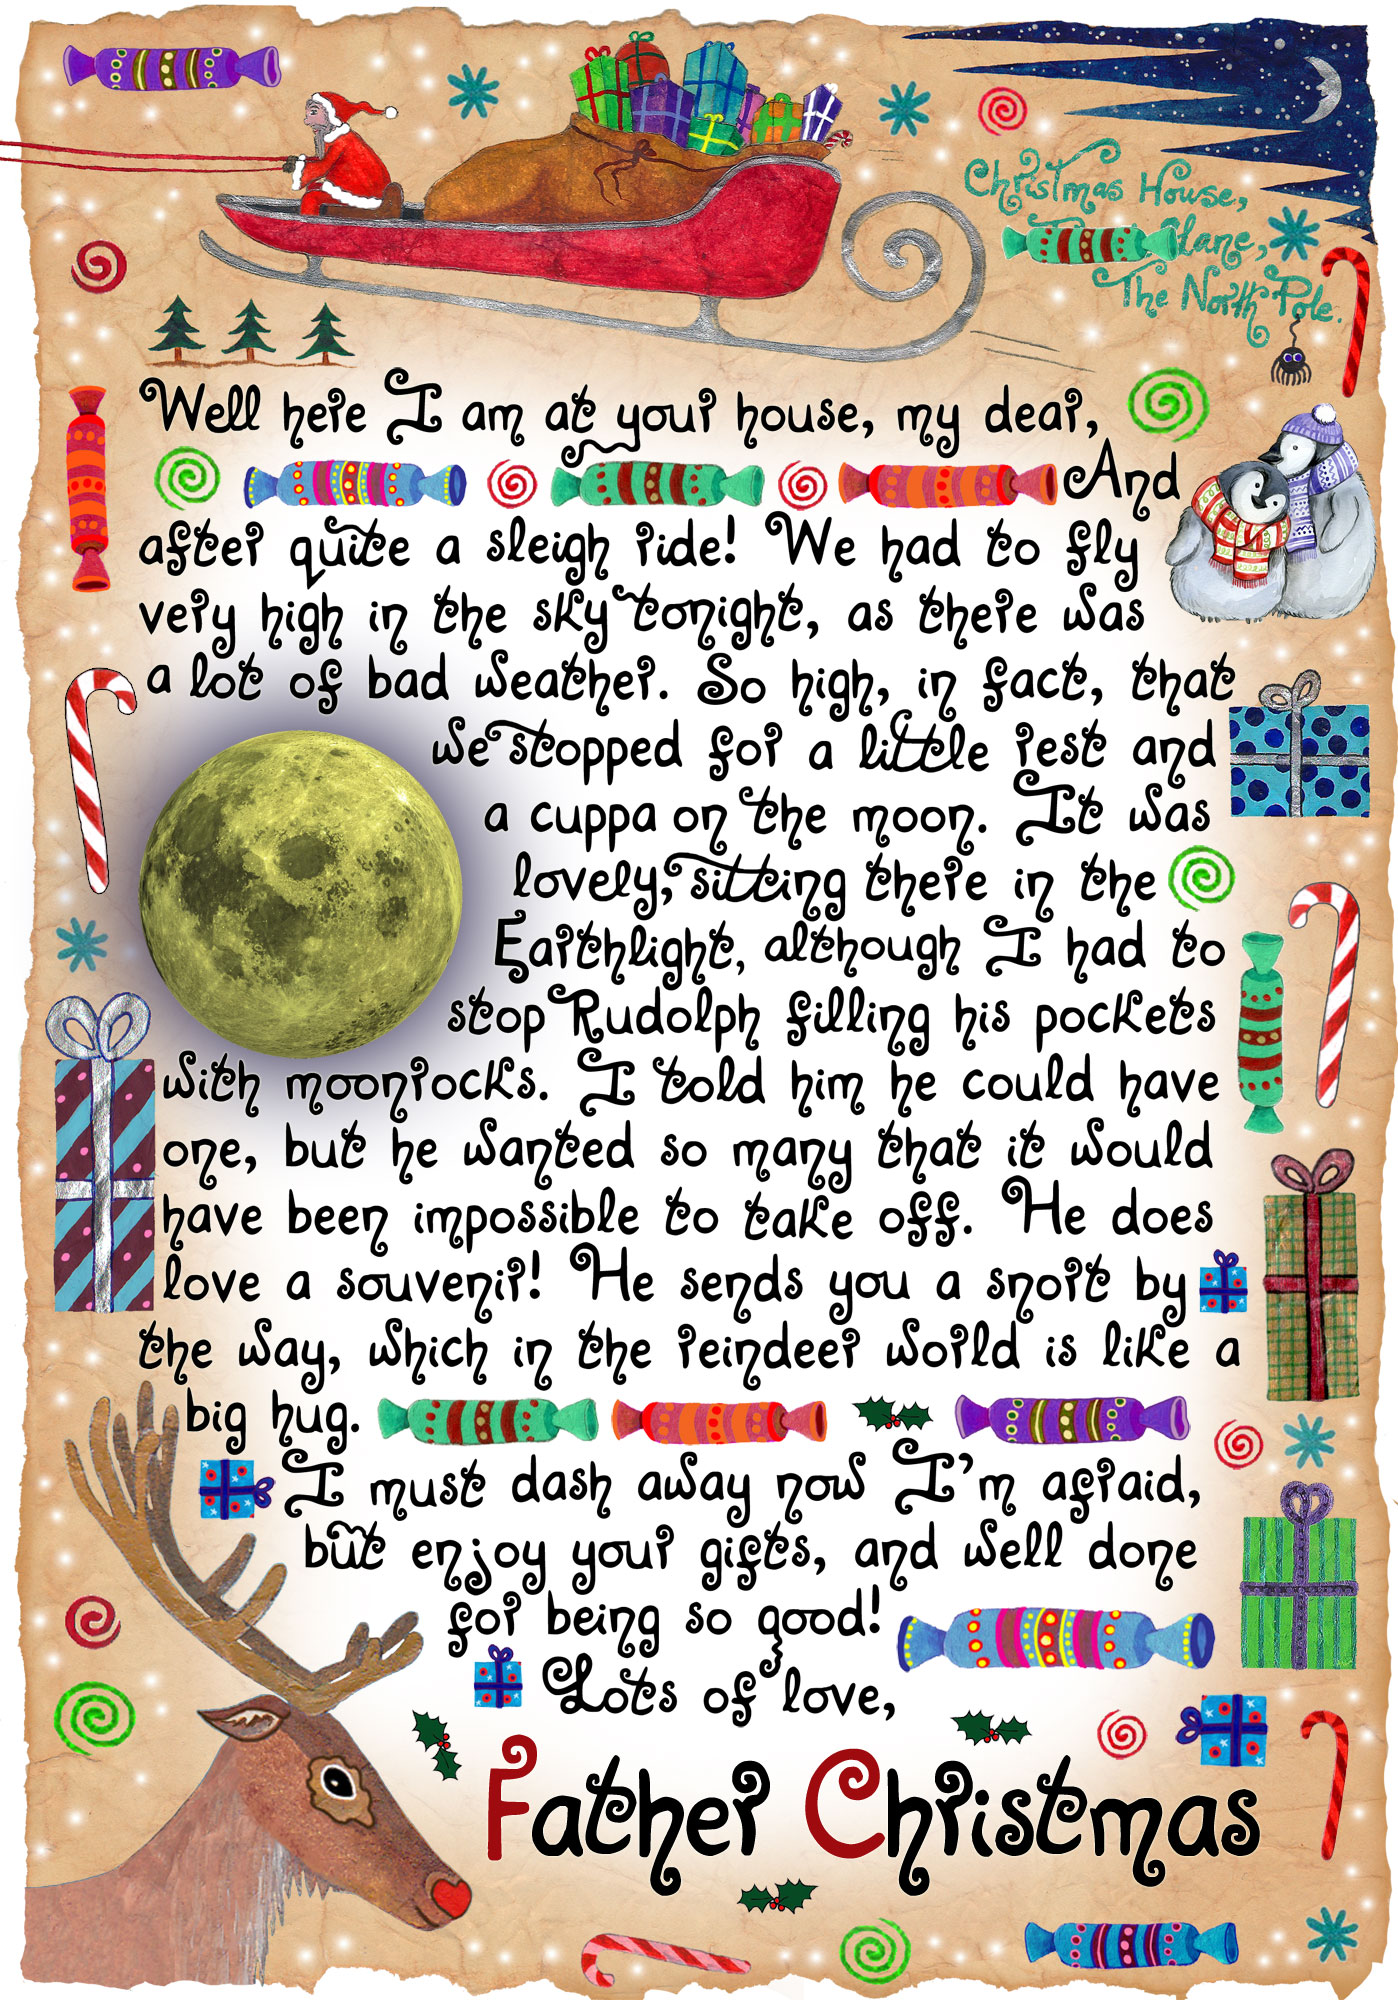 Christmas House,
Lane,
The North Pole.
Well here I am at your house, my dear,
And
after quite a sleigh ride! We had to fly
very high in the sky tonight, as there was
a lot of bad weather. So high, in fact, that
we stopped for a little rest and
a cuppa on the moon. It was
lovely, sitting there in the
Earthlight, although I had to
stop Rudolph filling his pockets
with moonrocks. I told him he could have
one, but he wanted so many that it would
have been impossible to take off. He does
love a souvenir! He sends you a snort by
the way, which in the reindeer world is like a
big hug.
I must dash away now I'm afraid,
but enjoy your gifts, and well done
for being so good!
Lots of love,
Father Christmas